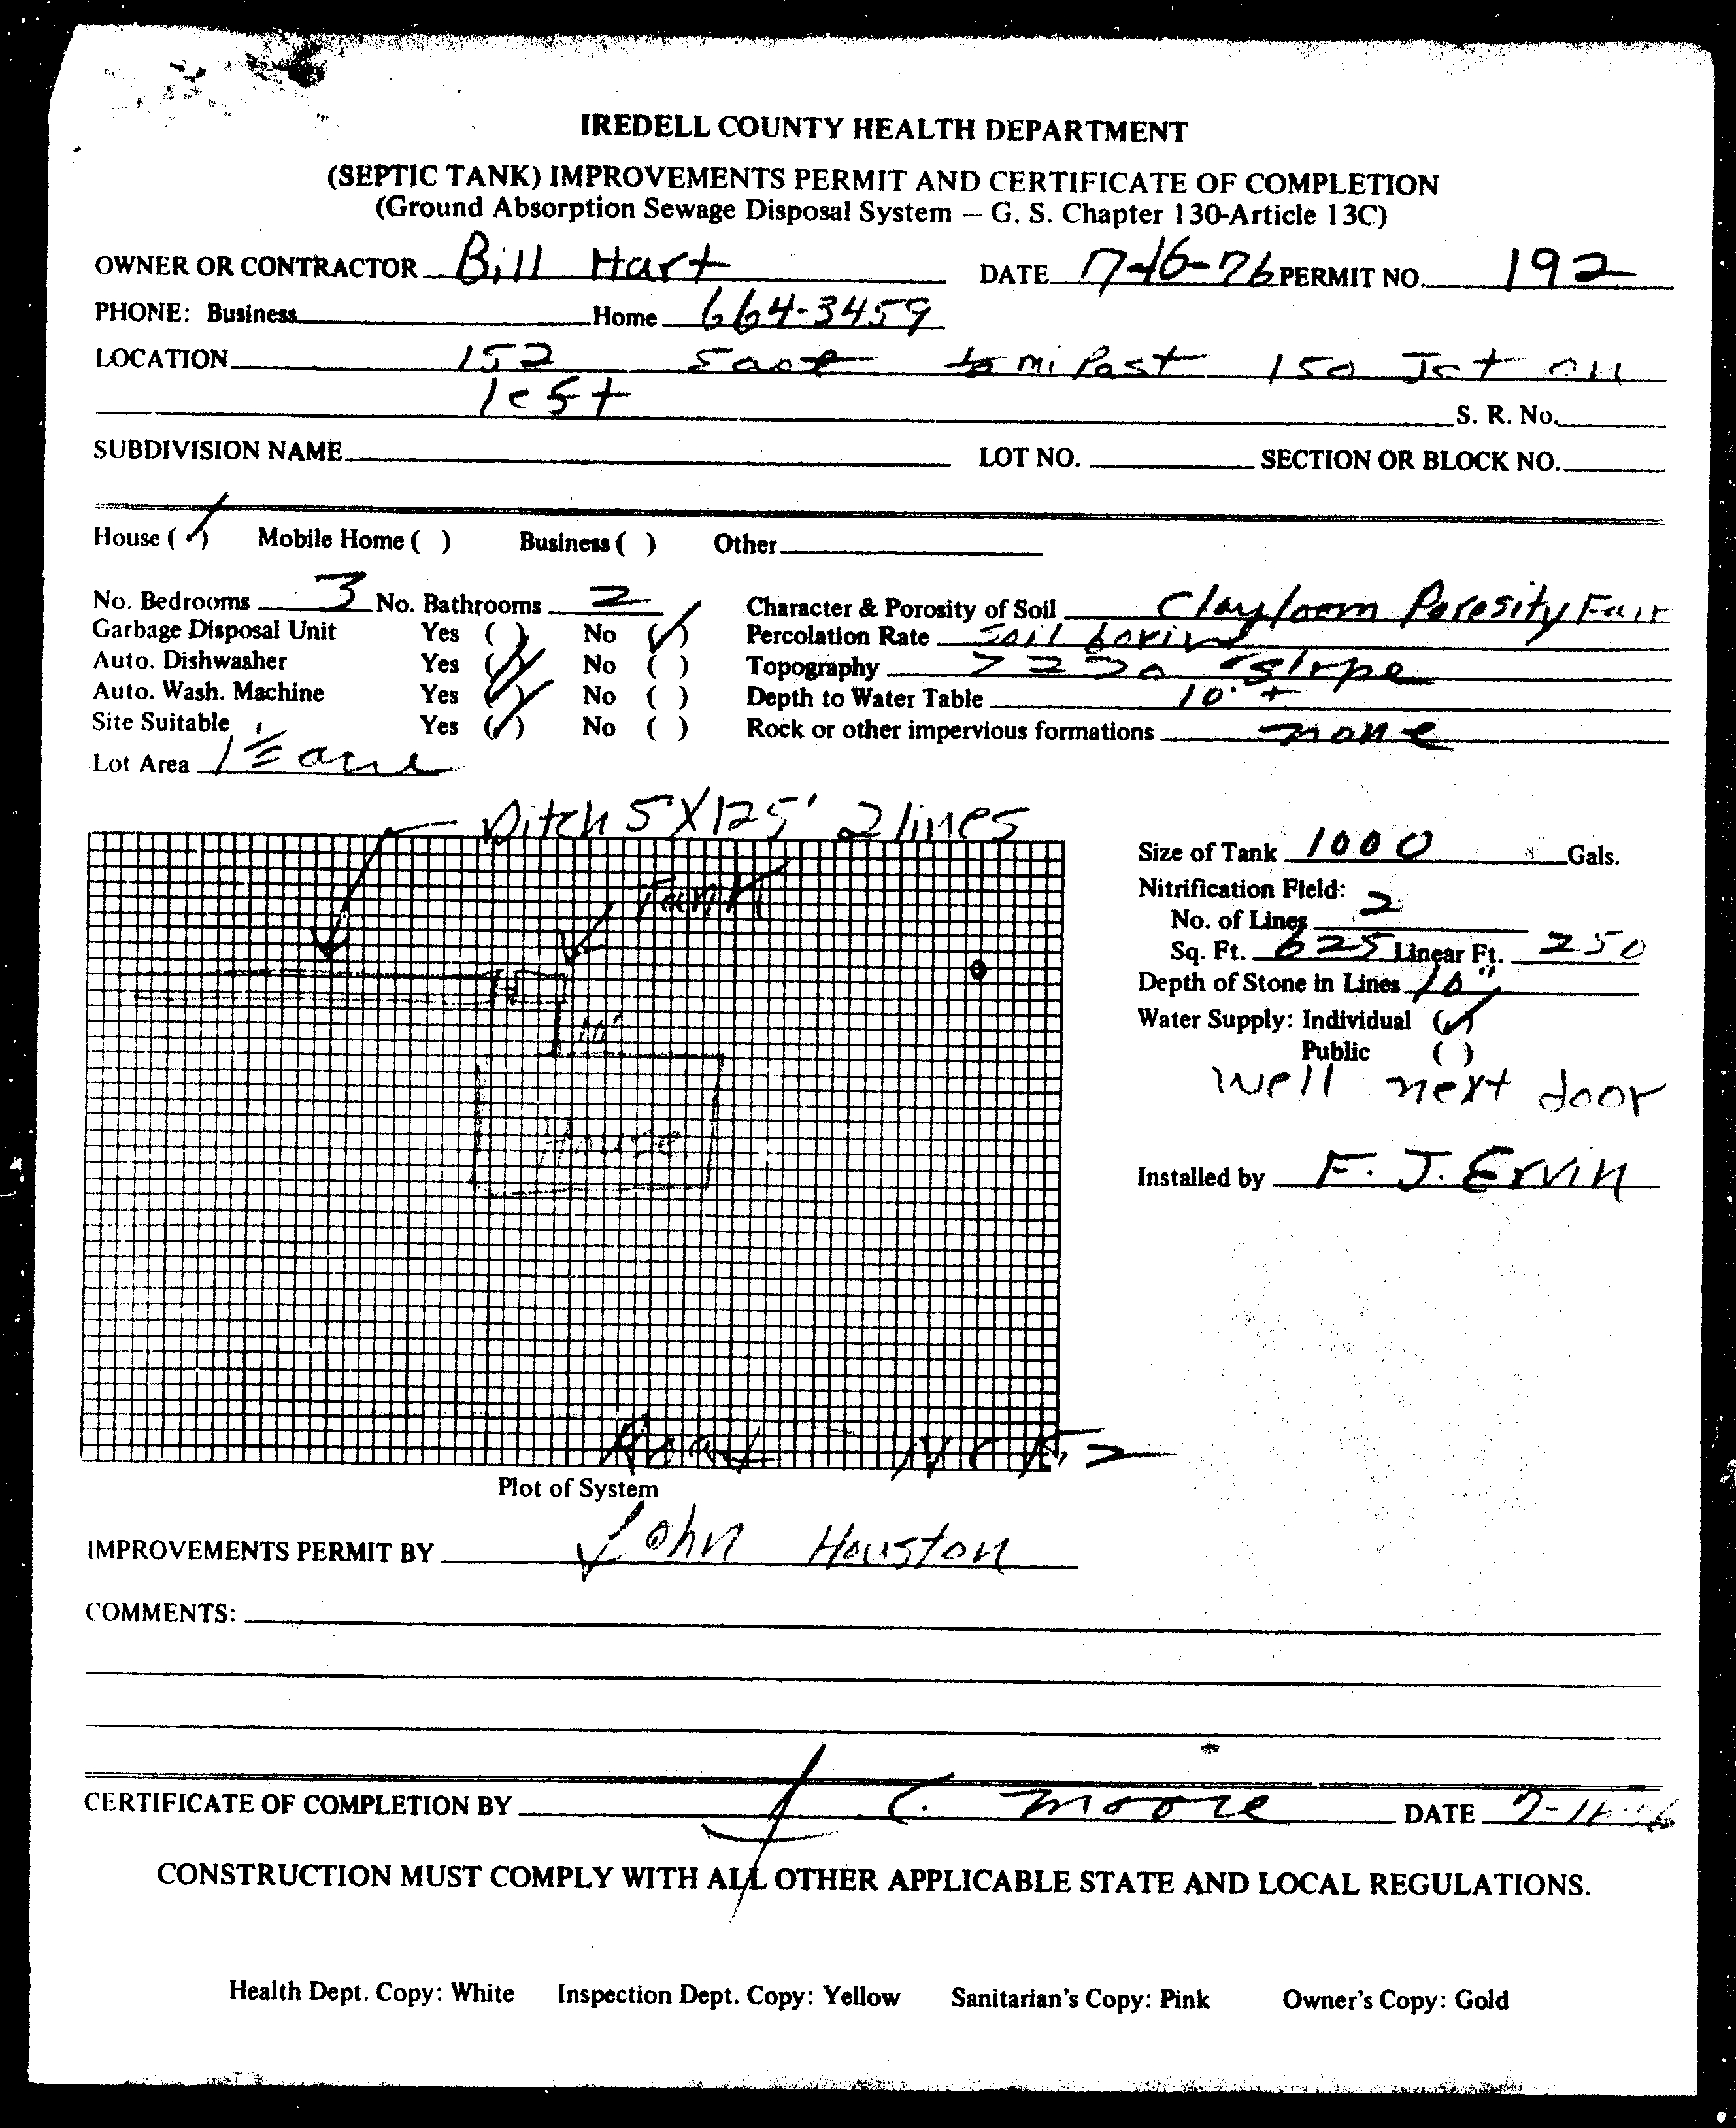 IREDELL COUNTY HEALTH DEPARTMENT
(SEPTIC TANK) IMPROVEMENTS PERMIT AND CERTIFICATE OF COMPLETION
(Ground Absorption Sewage Disposal System — G. S. Chapter 130-Article 13C)
OWNER OR CONTRACTOR Bill Hart DATE 7-16-76 PERMIT NO. 192
PHONE: Business Home 664-3459
LOCATION 152 East mi Past 150 Jct on
left
S. R. No.
SUBDIVISION NAME LOT NO. SECTION OR BLOCK NO.
House (✓) Mobile Home ( ) Business ( ) Other
No. Bedrooms 3 No. Bathrooms 2 Character & Porosity of Soil Clayloom Porosity Fair
Garbage Disposal Unit Yes ( ) No (✓) Percolation Rate Soil boring
Auto. Dishwasher Yes (✓) No ( ) Topography slope
Auto. Wash. Machine Yes (✓) No ( ) Depth to Water Table 10' +
Site Suitable Yes (✓) No ( ) Rock or other impervious formations none
Lot Area 1½ acre
Ditch 5'X125' 2 lines
Size of Tank 1000 Gals.
Tank
Nitrification Field:
No. of Lines 2
Sq. Ft. 625 Linear Ft. 250
Depth of Stone in Lines 10"
Water Supply: Individual (✓)
10'
Public ( )
well next door
House
Installed by F. J. Ervin
Road
Plot of System
IMPROVEMENTS PERMIT BY John Houston
COMMENTS:
CERTIFICATE OF COMPLETION BY J. C. Moore DATE
CONSTRUCTION MUST COMPLY WITH ALL OTHER APPLICABLE STATE AND LOCAL REGULATIONS.
Health Dept. Copy: White Inspection Dept. Copy: Yellow Sanitarian's Copy: Pink Owner's Copy: Gold